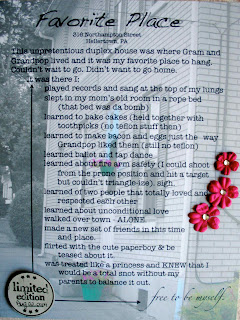 Favorite Place
398 Northampton Street
Hellertown, PA
This unpretentious duplex house was where Gram and
Grandpop lived and it was my favorite place to hang.
Couldn't wait to go. Didn't want to go home.
It was there I:
played records and sang at the top of my lungs
slept in my mom's old room in a rope bed
(that bed was da bomb)
learned to bake cakes (held together with
toothpicks (no teflon stuff then)
learned to make bacon and eggs just the way
Grandpop liked them (still no teflon)
learned ballet and tap dance
learned about fire arm safety (I could shoot
from the prone position and hit a target
but couldn't triangle-ize). sigh.
learned of two people that totally loved and
respected each other
learned about unconditional love
walked over town - ALONE
made a new set of friends in this time
and place.
flirted with the cute paperboy & be
teased about it
was treated like a princess and KNEW that I
would be a total snot without my
parents to balance it out.
limited
edition
free to be myself.